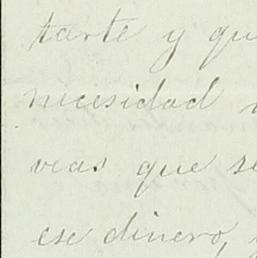 tarte y qu
necesidad
veas que se
ese dinero,